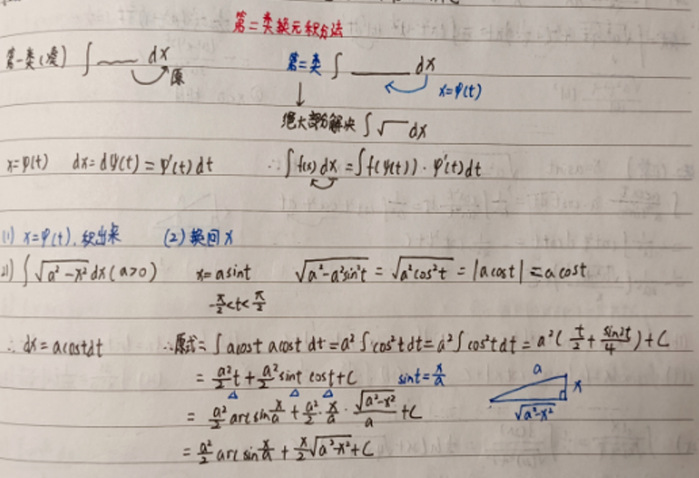 第二类换元积分法
第一类(凑) ∫ ___ dx 原
第二类 ∫ ___ dx x=φ(t)
绝大部分解决 ∫√ dx
x=φ(t) dx=dφ(t)=φ'(t)dt ∴∫f(x)dx=∫f(φ(t))·φ'(t)dt
(1) x=φ(t), 积出来 (2) 换回x
21) ∫√(a²-x²) dx (a>0) x=asint √(a²-a²sin²t) = √(a²cos²t) = |acost| = acost
-π/2<t<π/2
∴dx=acostdt ∴原式=∫acost acost dt=a²∫cos²t dt=a²∫cos²t dt=a²(t/2+sin2t/4)+C
=a²/2 t+a²/2 sint cost+C sint=x/a
=a²/2 arcsin x/a+a²/2·x/a·√(a²-x²)/a+C
a x √(a²-x²)
=a²/2 arcsin x/a+x/2 √(a²-x²)+C